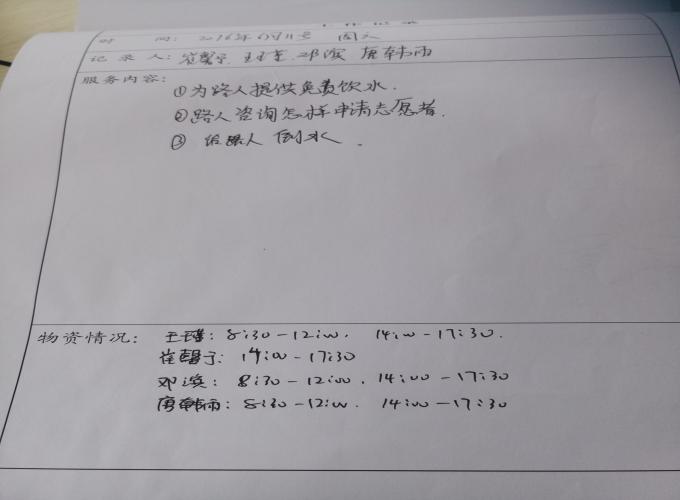 工作记录
时 间: 2016年 周六
记录人: 崔馨予 王瑾 邓滨 唐韩雨
服务内容:
①为路人提供免费饮水.
②路人咨询怎样申请志愿者.
③ 给路人 倒水.
物资情况: 王瑾: 8:30-12:00. 14:00-17:30.
崔馨予: 14:00-17:30
邓滨: 8:30-12:00. 14:00-17:30
唐韩雨: 8:30-12:00. 14:00-17:30